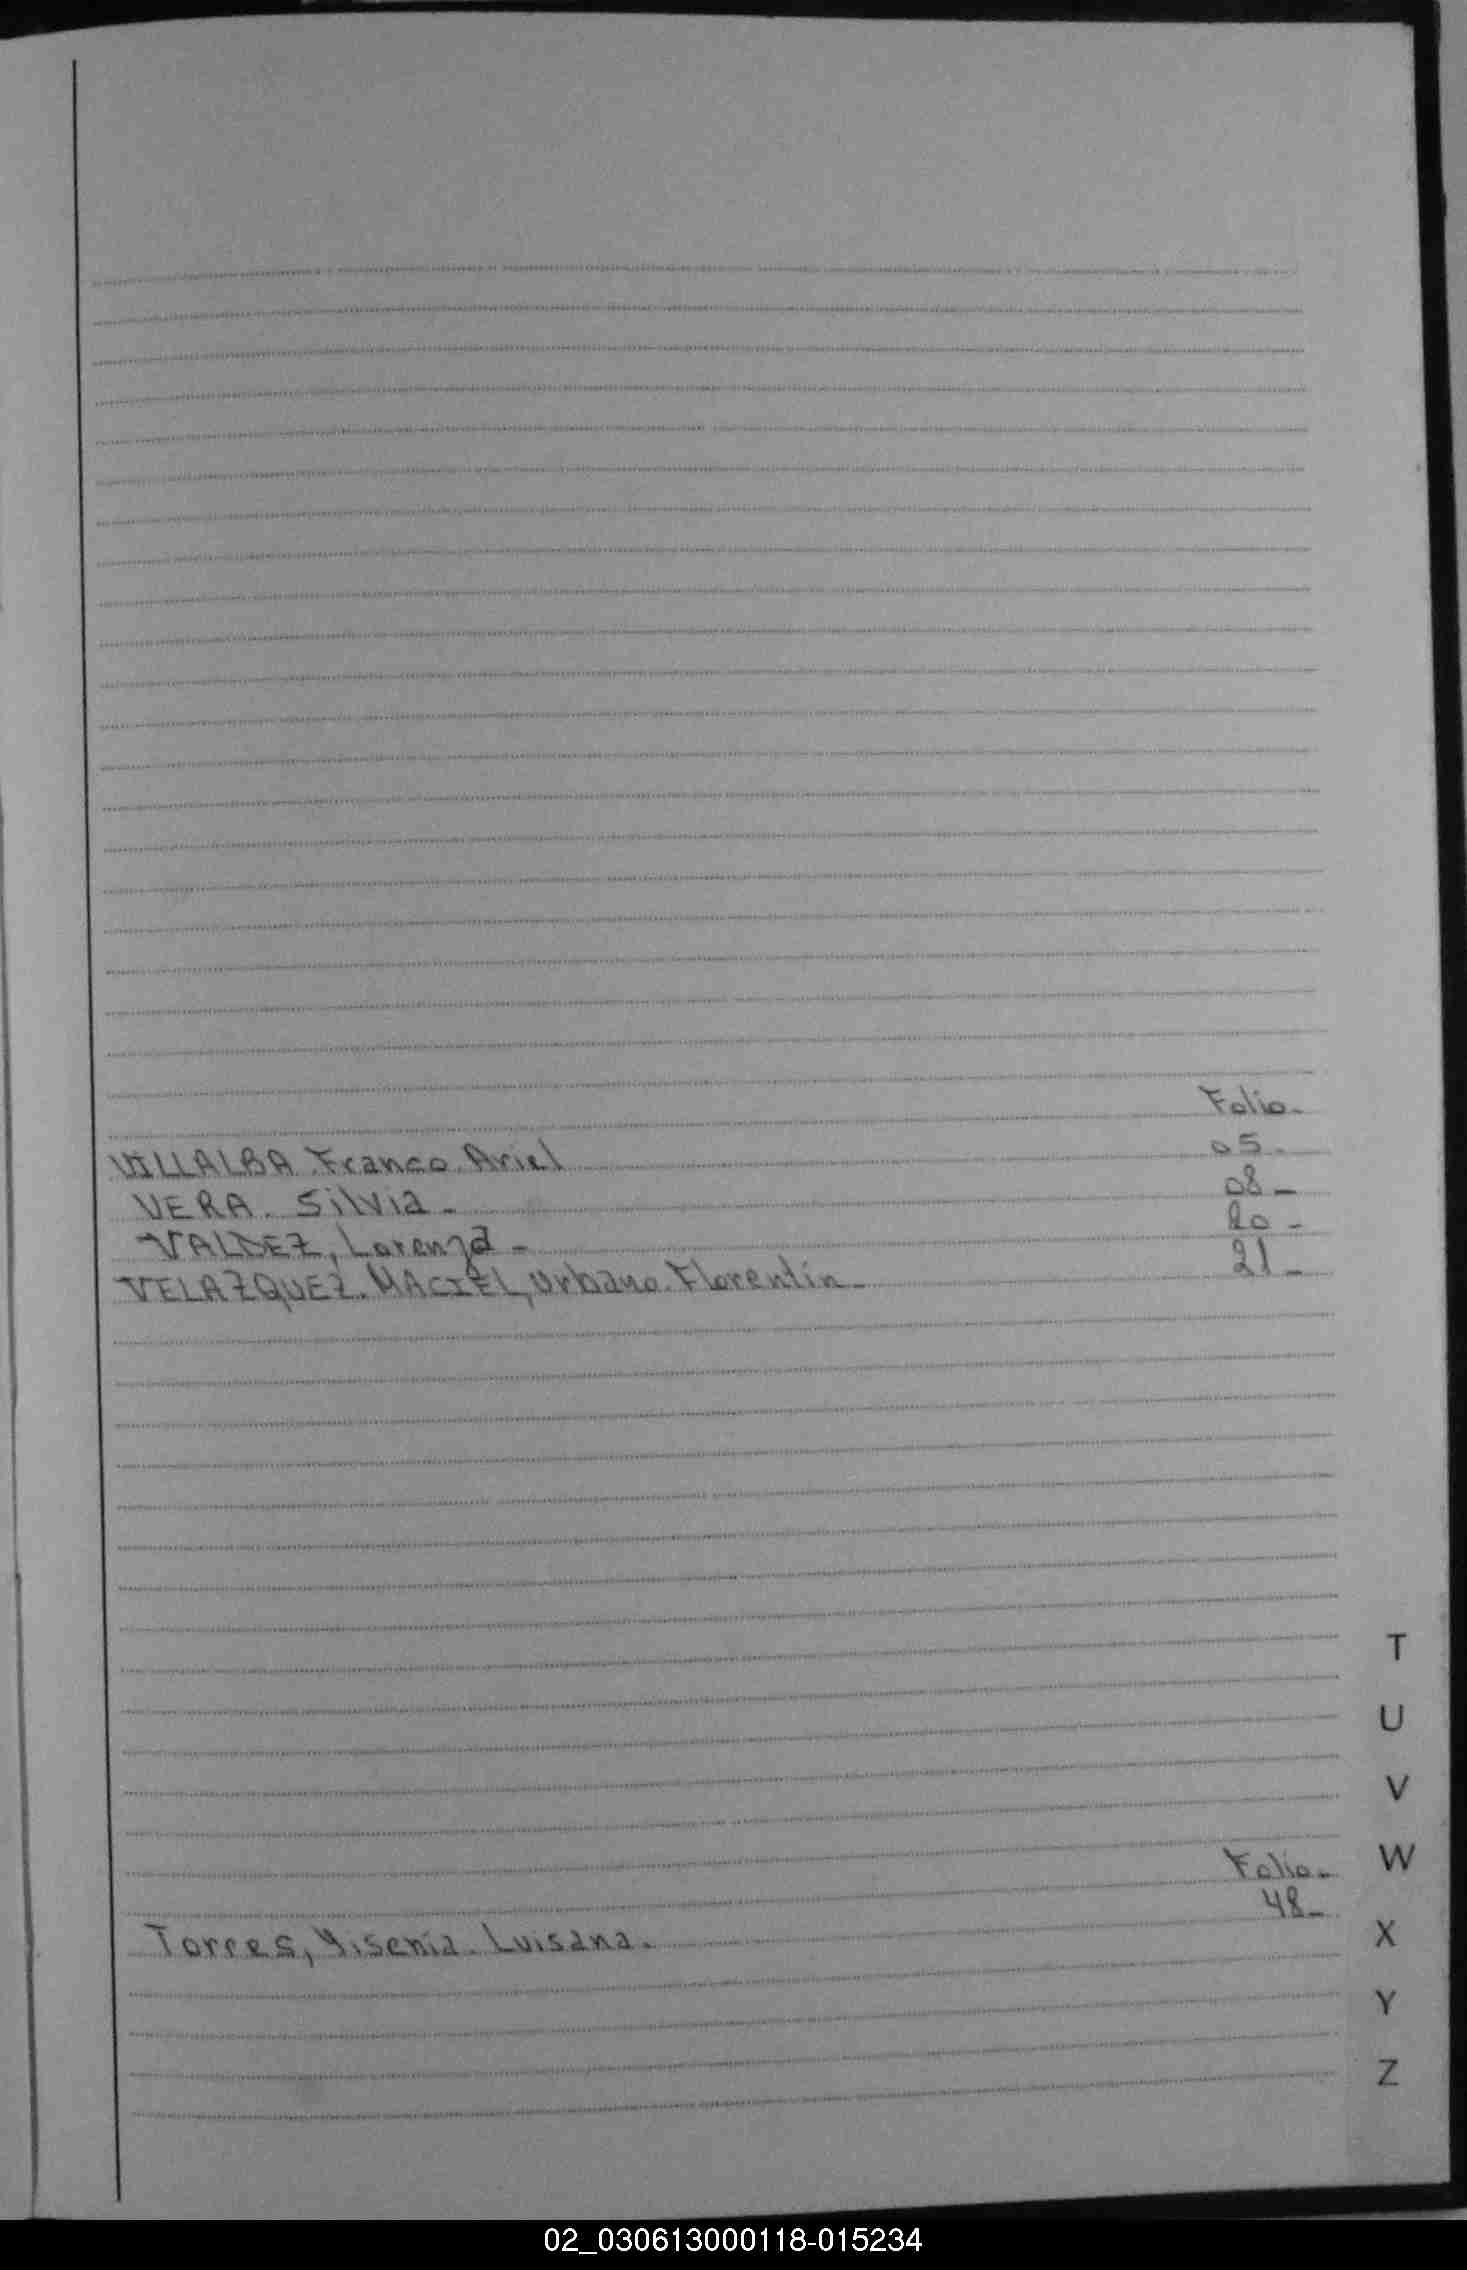 Folio-
VILLALBA Franco Ariel 05-
VERA. Silvia- 08-
VALDEZ, Lorenza- 20-
VELAZQUEZ. MACIEL, Urbano. Florentín- 21-
Folio-
Torres, Yisenia. Luisana. 48-
T
U
V
W
X
Y
Z
02_030613000118-015234